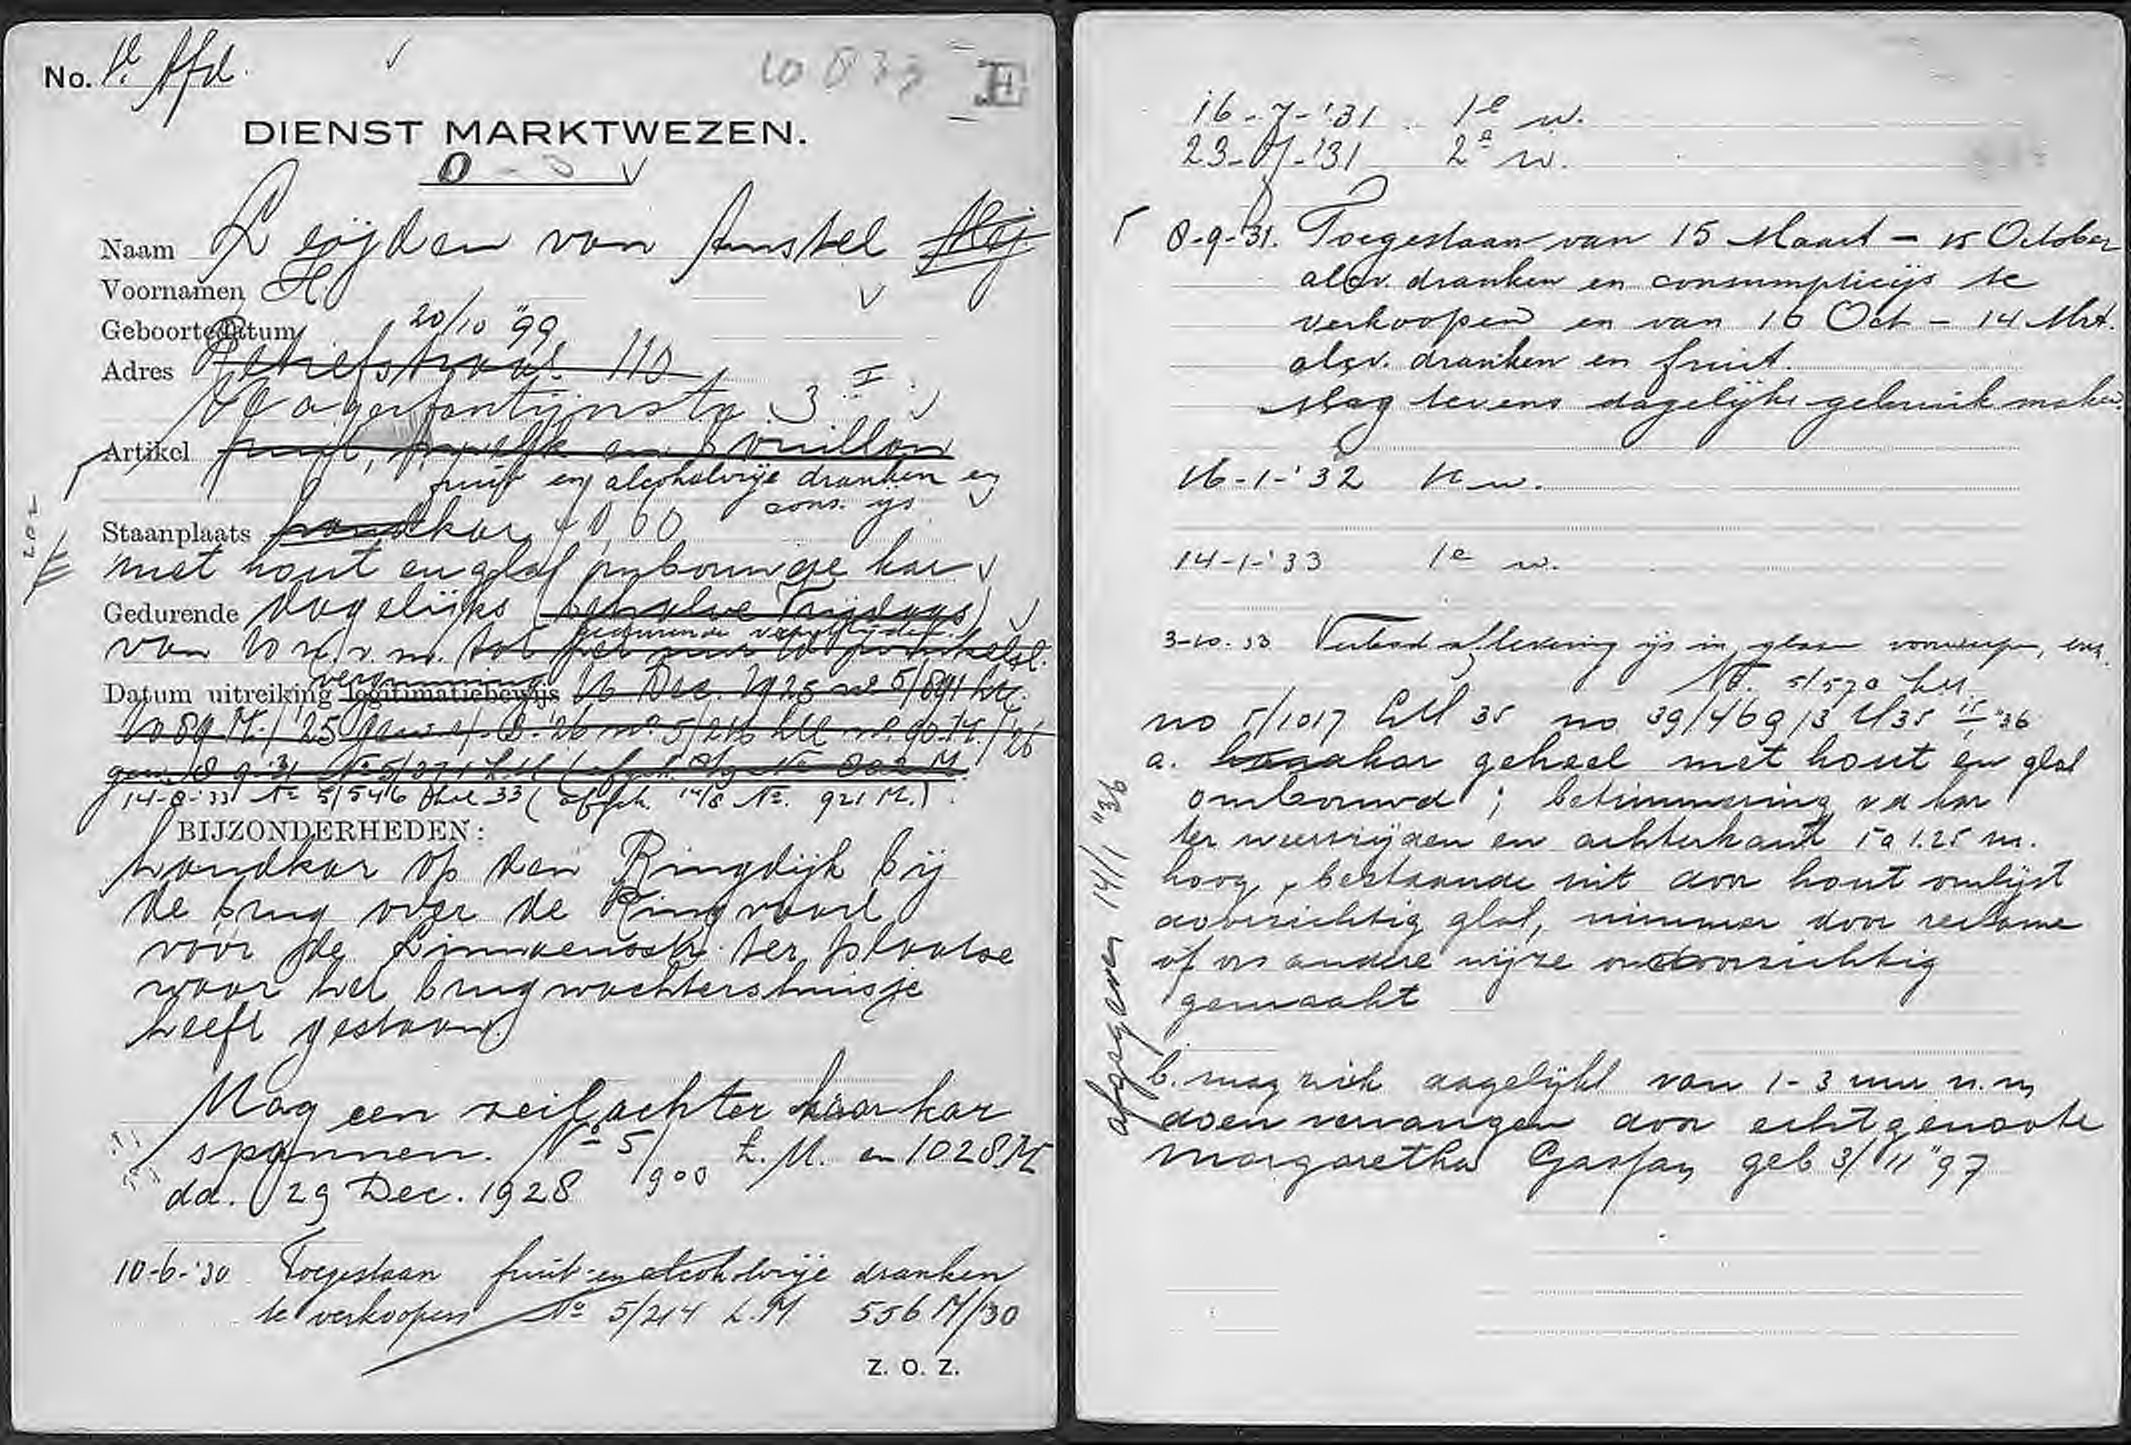 No. V. Afd.
10833 E
DIENST MARKTWEZEN.
Naam Leijden van Amstel
Voornamen H
Geboortedatum 20/10 '99
Adres Retiefstraat 110
3 I
Artikel fruit, melk en Bouillon
fruit en alcoholvrije dranken en
cons. ijs
Staanplaats handkar f 0,60
met hout en glas ombouwde kar
Gedurende dagelijks (behalve Vrijdags)
van 10 u. v.m. tot
Datum uitreiking legitimatiebewijs 16 Dec. 1925 no 5/891 LM.
vergunning
14-8-'33 No 5/546 LM 33 (afgeh. 14/8 No. 921 M.)
BIJZONDERHEDEN:
handkar op den Ringdijk bij
de brug over de Ringvaart
voor de Linnaeusstr. ter plaatse
waar het brugwachtershuisje
heeft gestaan
Mag een zeil achter haar kar
spannen. No 5/900 L.M. en 1028 M
dd. 29 Dec. 1928
10-6-'30 Toegestaan fruit en alcoholvrije dranken
te verkoopen No 5/214 L.M 556 M/'30
Z. O. Z.
16-7-'31 1e w.
23-7-'31 2e w.
8-9-'31. Toegestaan van 15 Maart - 15 October
alcv. dranken en consumptieijs te
verkoopen en van 16 Oct - 14 Mrt.
alcv. dranken en fruit.
Mag tevens dagelijks gebruik maken
16-1-'32 1e w.
14-1-'33 1e w.
3-10-33 Verbod aflevering ijs in glazen voorwerpen, enz.
No. 5/570 LM.
no 5/1017 LM 35 no 39/469/3 M/35 15/1 '36
a. kar geheel met hout en glas
ombouwd; betimmering v d kar
ter weerszijden en achterkant 1 a 1.25 m.
hoog, bestaande uit door hout omlijst
doorzichtig glas, nimmer door reclame
of op andere wijze ondoorzichtig
gemaakt
b. mag zich dagelijks van 1-3 uur n.m
doen vervangen door echtgenoote
Margaretha geb 3/11 '97
afgegeven 14/1 '36